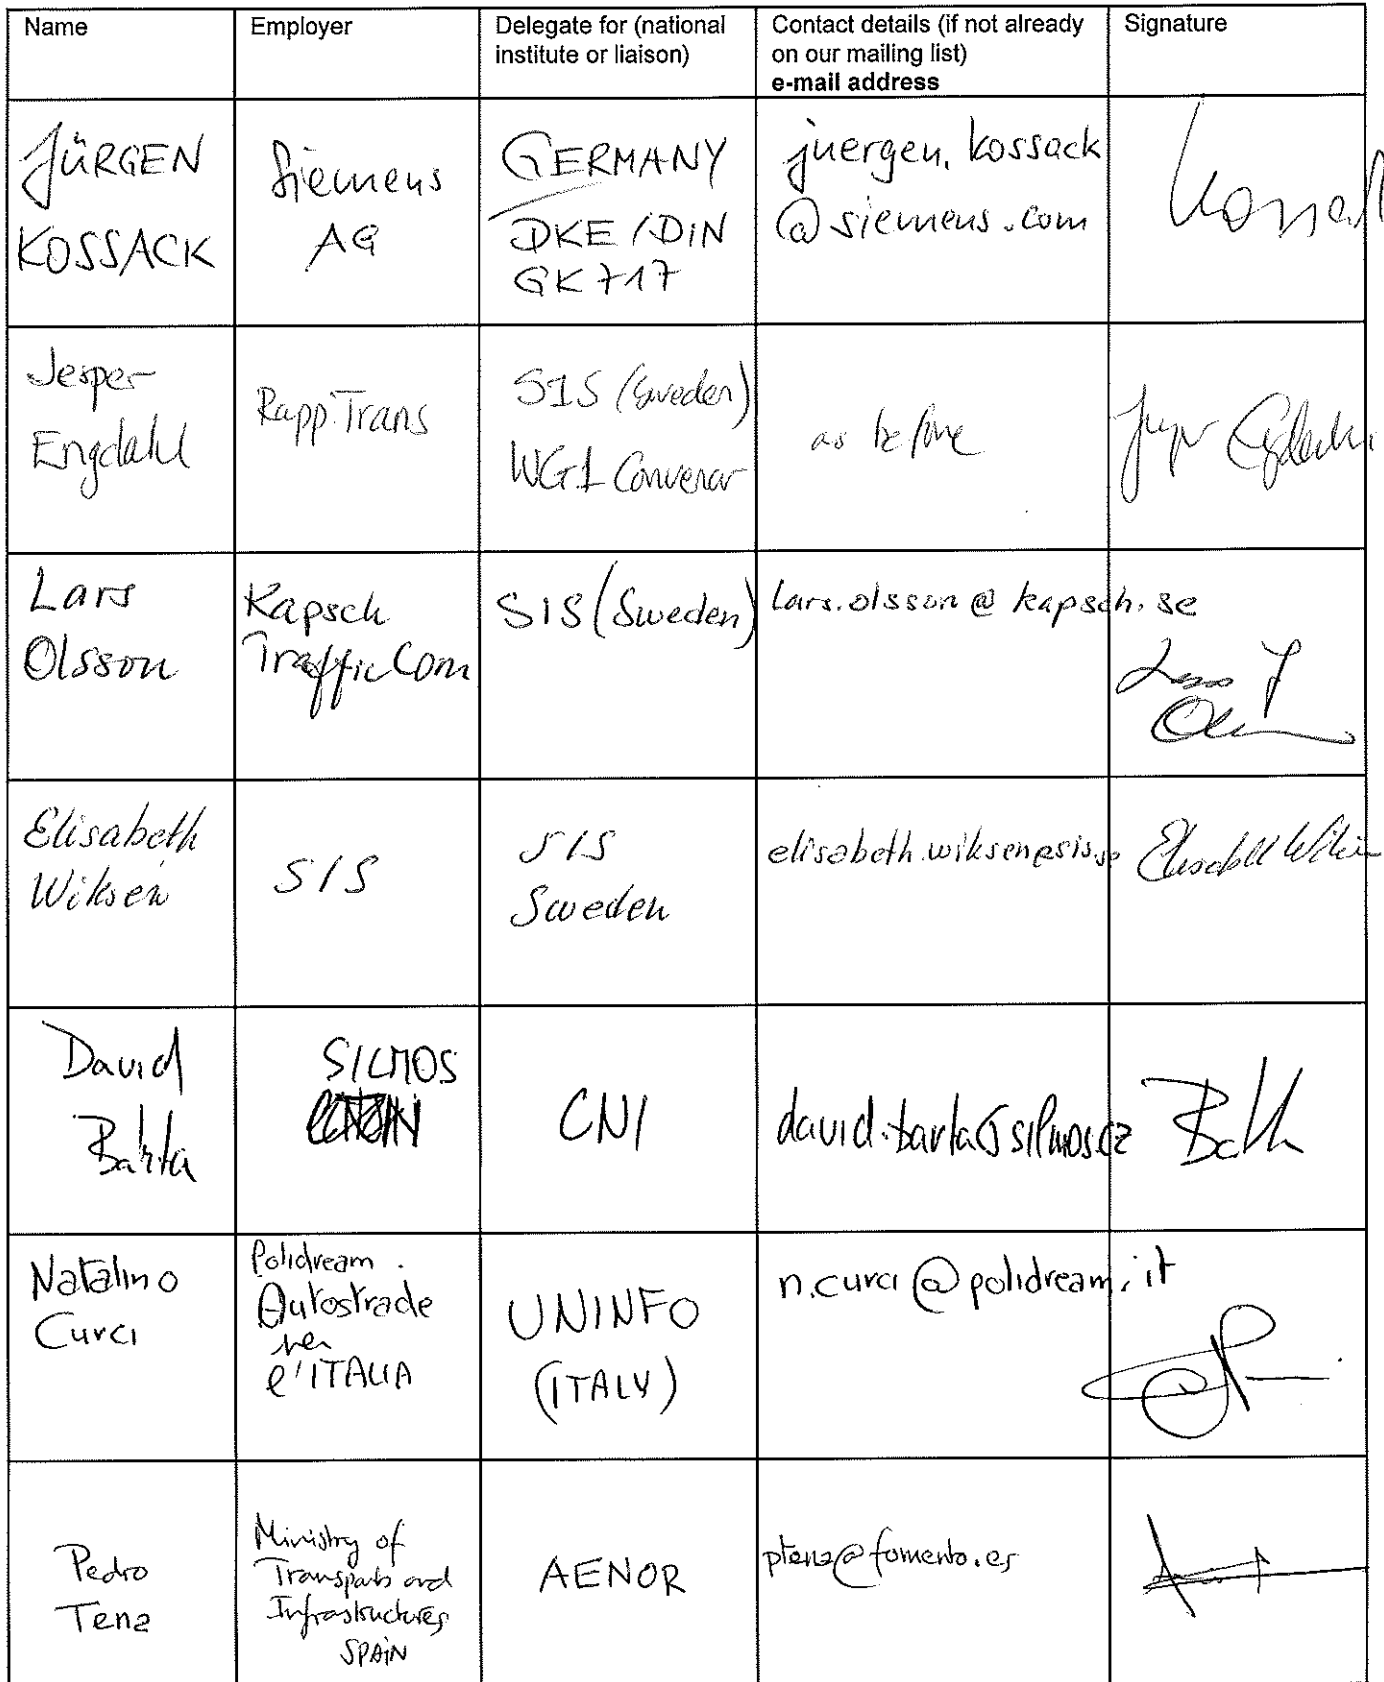 Name
Employer
Delegate for (national
institute or liaison)
Contact details (if not already
on our mailing list)
e-mail address
Signature
JÜRGEN
KOSSACK
Siemens
AG
GERMANY
DKE/DIN
GK 717
juergen.kossack
@siemens.com
Kossack
Jesper
Engdahl
Rapp Trans
SIS (Sweden)
WG1 Convenor
as before
Lars
Olsson
Kapsch
TrafficCom
SIS (Sweden)
lars.olsson@kapsch.se
Elisabeth
Wiksén
SIS
SIS
Sweden
elisabeth.wiksen@sis.se
Elisabeth Wiksén
David
Bárta
SILMOS
CNI
david.barta@silmos.cz
Natalino
Curci
Polidream.
Autostrade
per
l'ITALIA
UNINFO
(ITALY)
n.curci@polidream.it
Pedro
Tena
Ministry of
Transports and
Infrastructures
SPAiN
AENOR
ptena@fomento.es